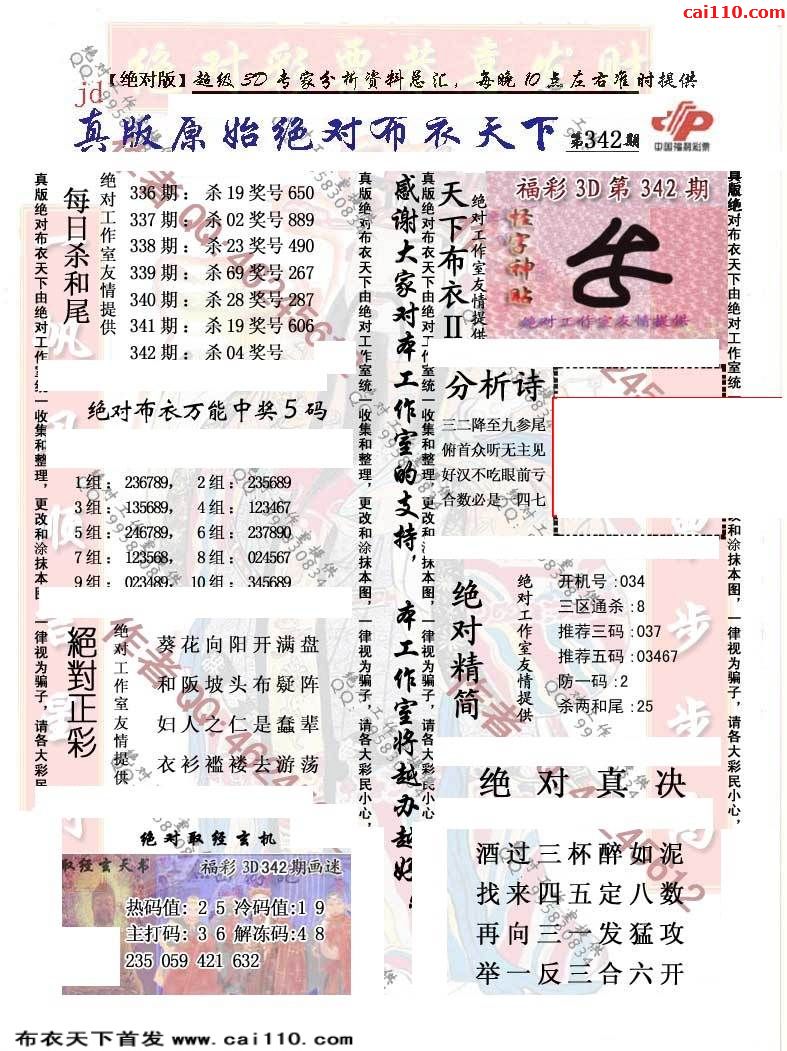 cai110.com
【绝对版】超级3D专家分析资料总汇，每晚10点左右准时提供
jd
真版原始绝对布衣天下 第342期
中国福利彩票
真版绝对布衣天下由绝对工作室统一收集和整理，更改和涂抹本图，一律视为骗子，请各大彩民小心，
每日杀和尾
绝对工作室友情提供
336期：杀19奖号650
337期：杀02奖号889
338期：杀23奖号490
339期：杀69奖号267
340期：杀28奖号287
341期：杀19奖号606
342期：杀04奖号
绝对布衣万能中奖5码
1组：236789，2组：235689
3组：135689，4组：123467
5组：246789，6组：237890
7组：123568，8组：024567
9组：023489，10组：345689
絕對正彩
绝对工作室友情提供
葵花向阳开满盘
和阪坡头布疑阵
妇人之仁是蠢辈
衣衫褴褛去游荡
绝对取经玄机
取经玄天书 福彩3D342期画迷
热码值：25冷码值:19
主打码：36解冻码:48
235 059 421 632
真版绝对布衣天下由绝对工作室统一收集和整理，更改和涂抹本图，一律视为骗子，请各大彩民小心，
感谢大家对本工作室的支持，本工作室将越办越好
真版绝对布衣天下由绝对工作室统一收集和整理，更改和涂抹本图，一律视为骗子，请各大彩民小心，
天下布衣II
绝对工作室友情提供
福彩3D第342期
怪字神贴
绝对工作室友情提供
分析诗
三二降至九参尾
俯首众听无主见
好汉不吃眼前亏
合数必是一四七
绝对精简
绝对工作室友情提供
开机号:034
三区通杀:8
推荐三码:037
推荐五码:03467
防一码:2
杀两和尾:25
绝对真决
酒过三杯醉如泥
找来四五定八数
再向三一发猛攻
举一反三合六开
真版绝对布衣天下由绝对工作室统一
改和涂抹本图，一律视为骗子，请各大彩民小心，
布衣天下首发 www.cai110.com